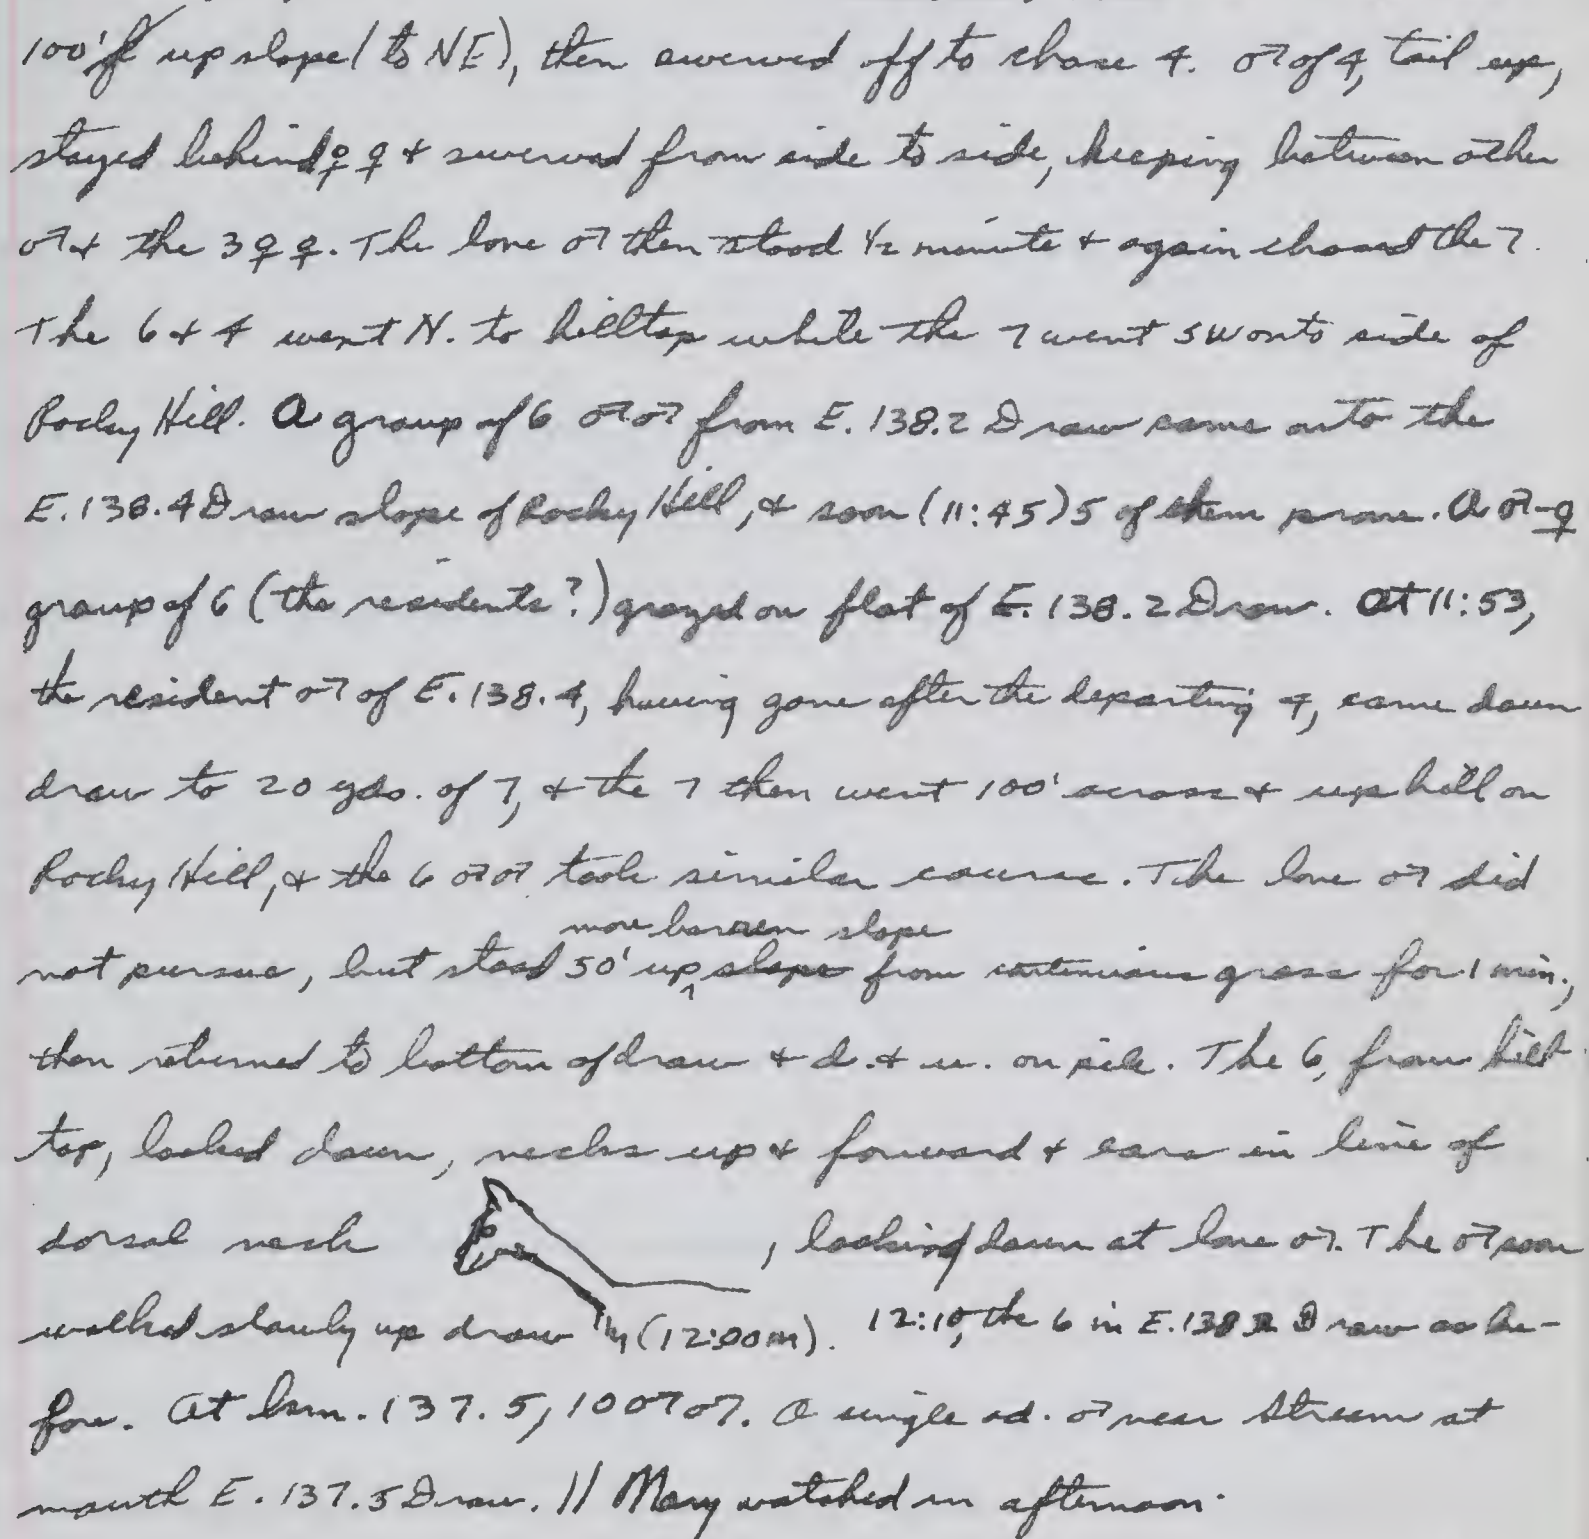 100' up slope (to NE), then swerved off to chase 4. ♂ of 4, tail up,
stayed behind ♀♀ & swerved from side to side, keeping between other
♂ & the 3 ♀♀. The lone ♂ then stood 1/2 minute & again chased the 7.
The 6 & 4 went N. to hilltop while the 7 went SW onto side of
Rocky Hill. A group of 6 ♂♂ from E. 138.2 Draw came onto the
E. 138.4 Draw slope of Rocky Hill, & soon (11:45) 5 of them prone. A ♂-♀
group of 6 (the residents?) grazed on flat of E. 138.2 Draw. At 11:53,
the resident ♂ of E. 138.4, having gone after the departing 4, came down
draw to 20 yds. of 7, & the 7 then went 100' across & up hill on
Rocky Hill, & the 6 ♂♂ took similar course. The lone ♂ did
more barren slope
not pursue, but stood 50' up slope from continuous grass for 1 min.,
then returned to bottom of draw & d. & u. on pile. The 6, from hill-
top, looked down, necks up & forward & ears in line of
dorsal neck , looking down at lone ♂. The ♂ soon
walked slowly up draw (12:00 m). 12:10, the 6 in E. 138.2 Draw as be-
fore. At km. 137.5, 10 ♂♂. A single ad. ♂ near stream at
mouth E. 137.5 Draw. // Mary watched in afternoon.